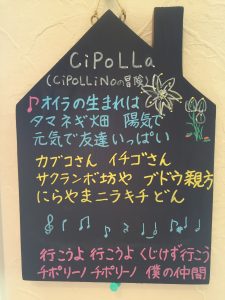 CiPoLLa
(CiPoLLiNoの冒険)
♪オイラの生まれは
タマネギ畑 陽気で
元気で友達いっぱい
カブコさん イチゴさん
サクランボ坊や ブドウ親方
にらやまニラキチどん
行こうよ 行こうよ くじけず行こう
チポリーノ チポリーノ 僕の仲間